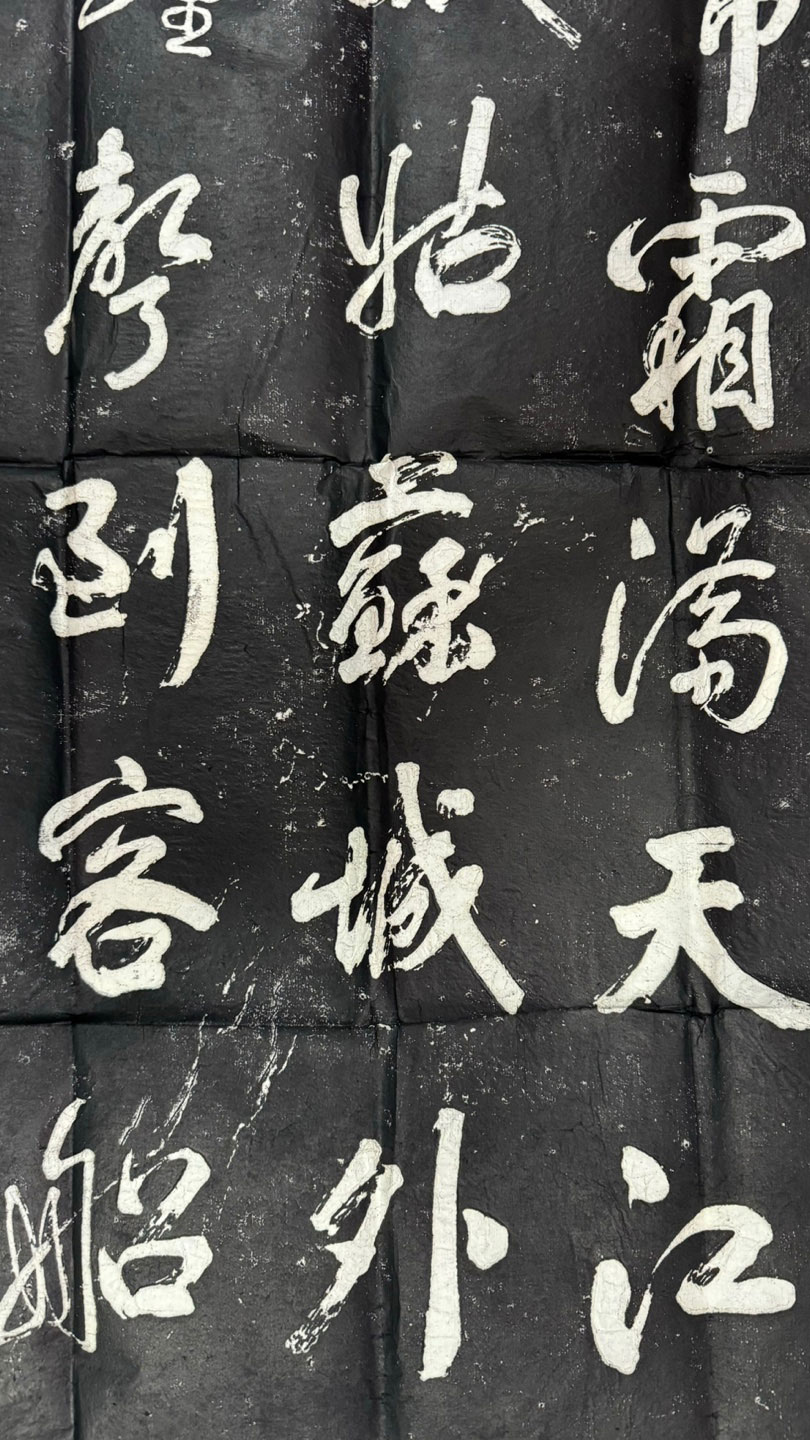 霜滿天江
姑蘇城外
聲到客船